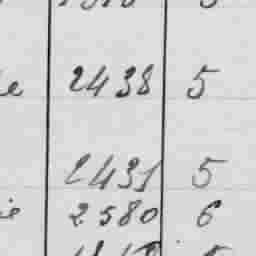 e 2438 5
2431 5
ie 2580 6